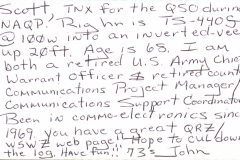 Scott, TNX for the QSO during
NAQP. Rig hr is TS-440S
@ 100w into an inverted-vee
up 20ft. Age is 68, I am
both a retired U.S. Army Chief
Warrant Officer & retired county
Communications Project Manager/
Communications Support Coordinator
Been in comm-electronics since
1969. you have a great QRZ/
W5WZ web page. Hope to cul down
the log. Have fun!! 73s John